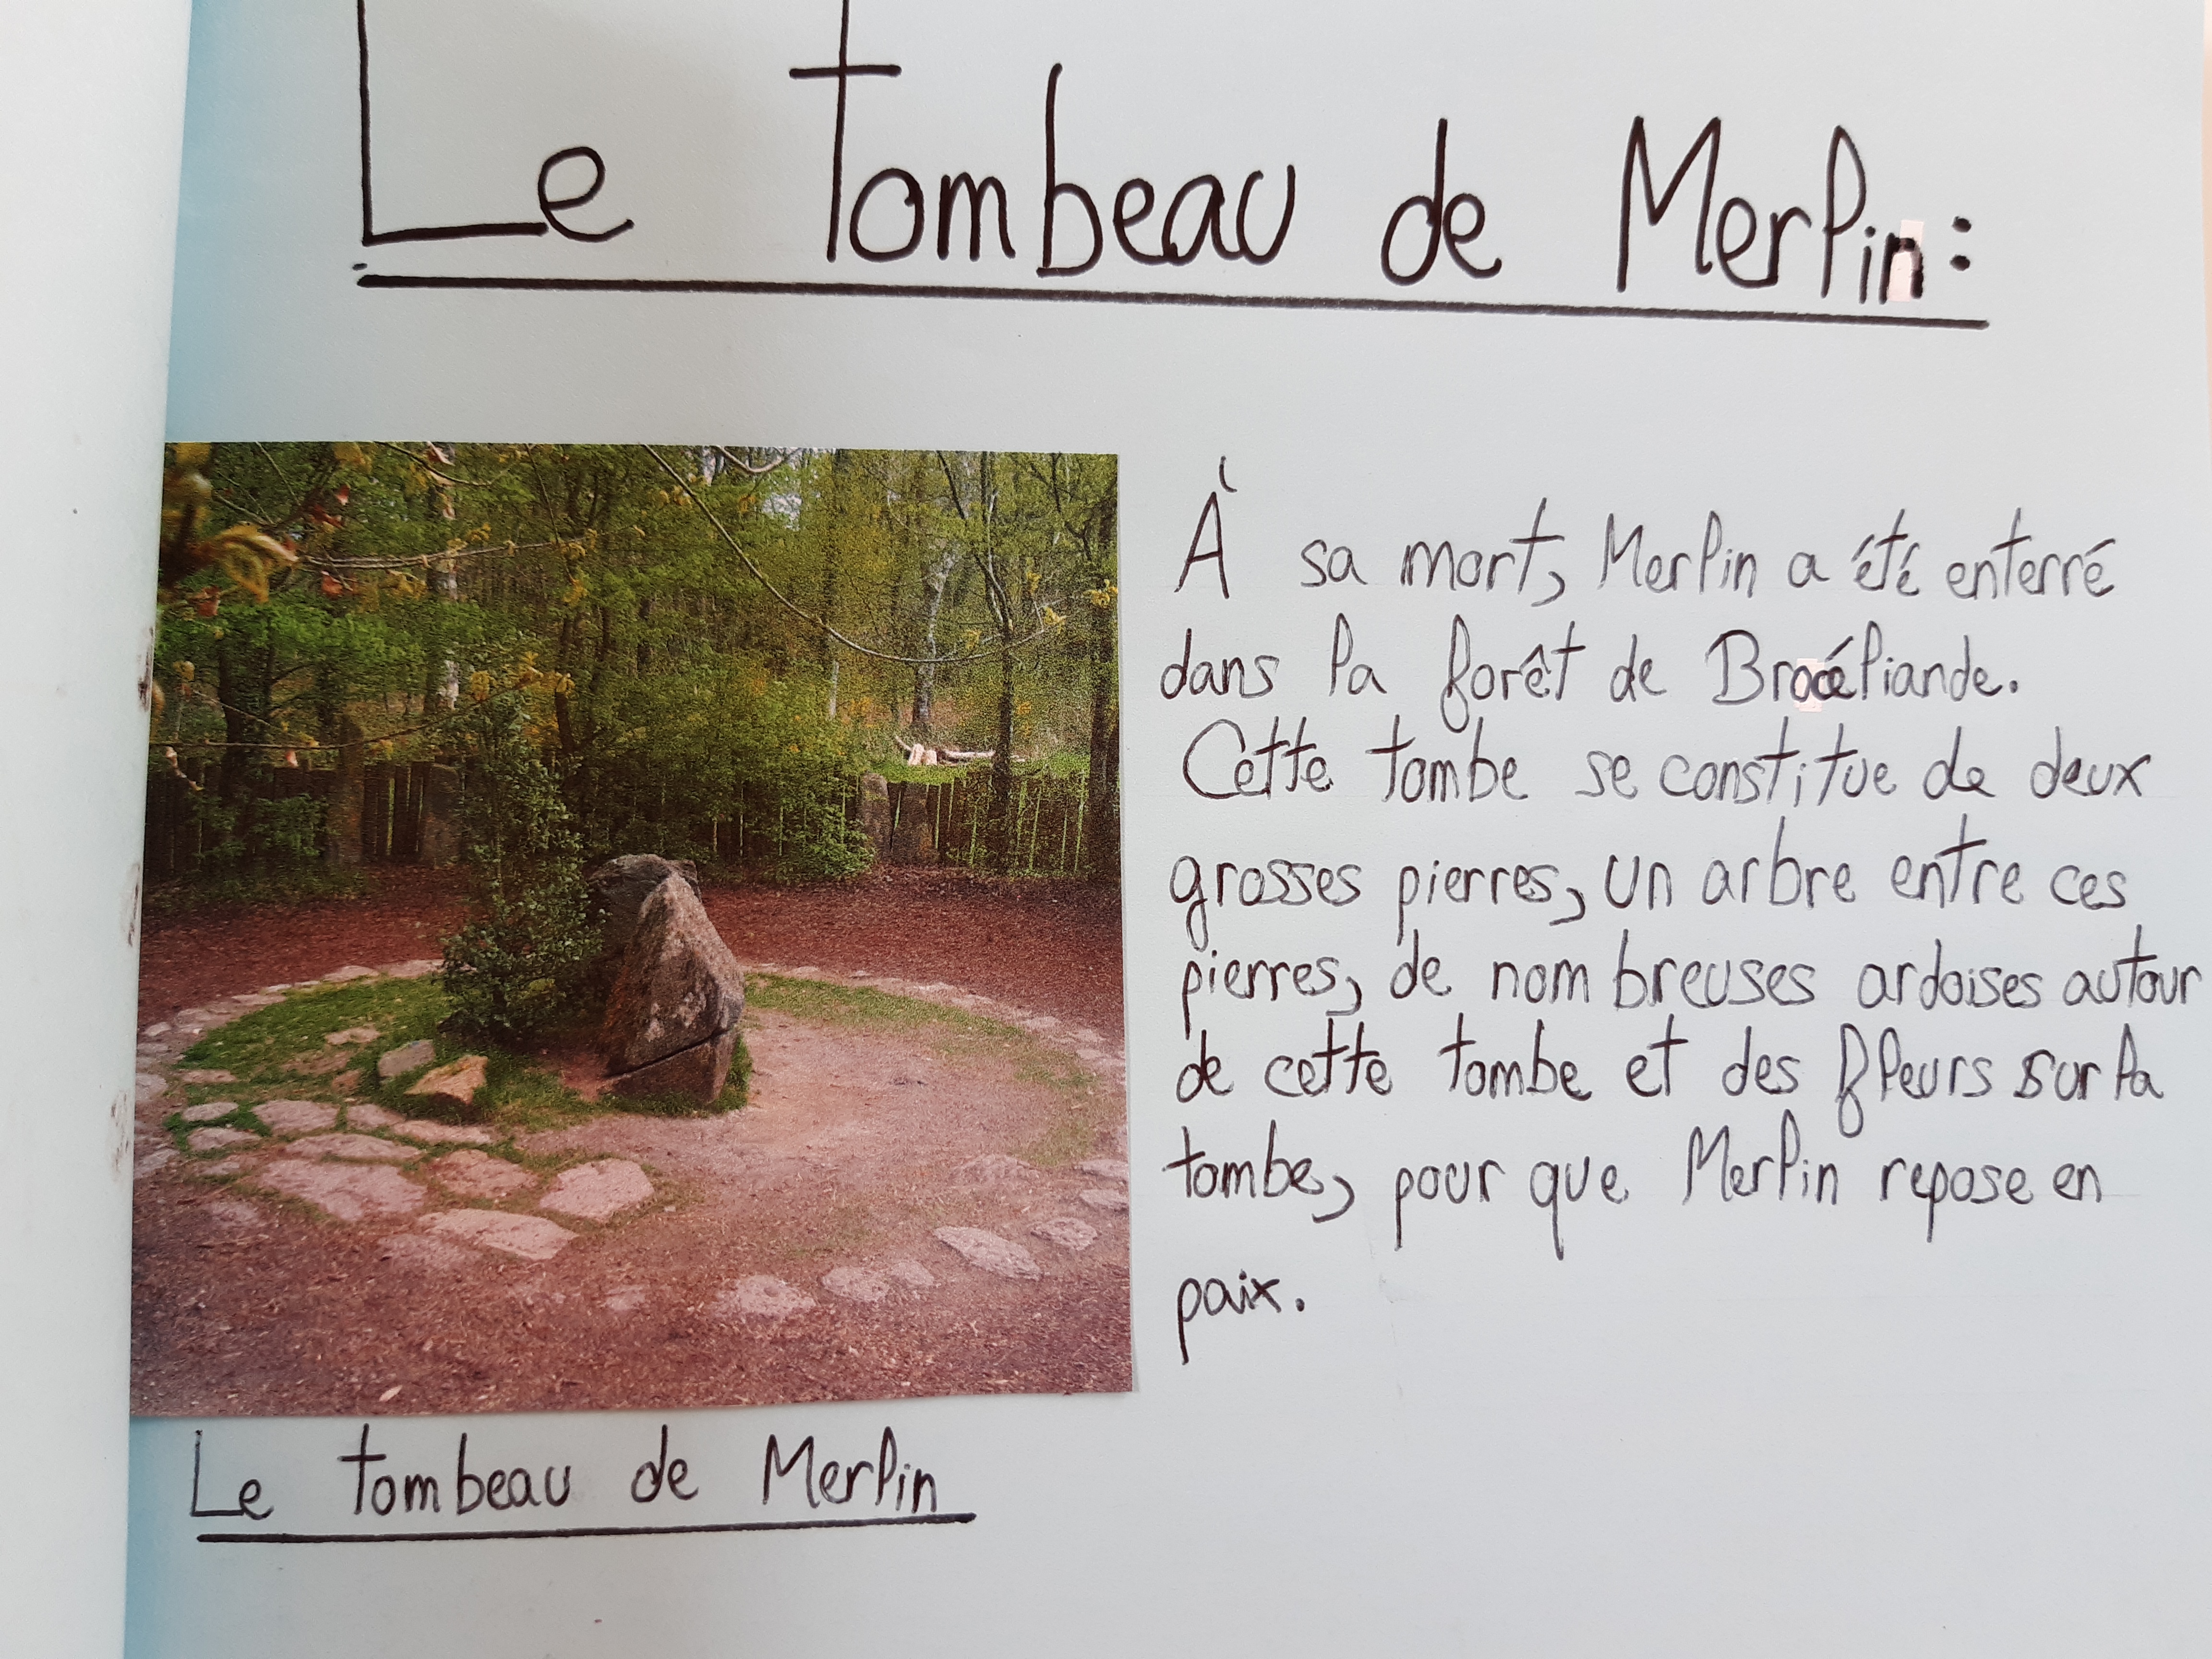 Le tombeau de Merlin:
À sa mort, Merlin a été enterré
dans la forêt de Brocéliande.
Cette tombe se constitue de deux
grosses pierres, un arbre entre ces
pierres, de nombreuses ardoises autour
de cette tombe et des fleurs sur la
tombe, pour que Merlin repose en
paix.
Le tombeau de Merlin